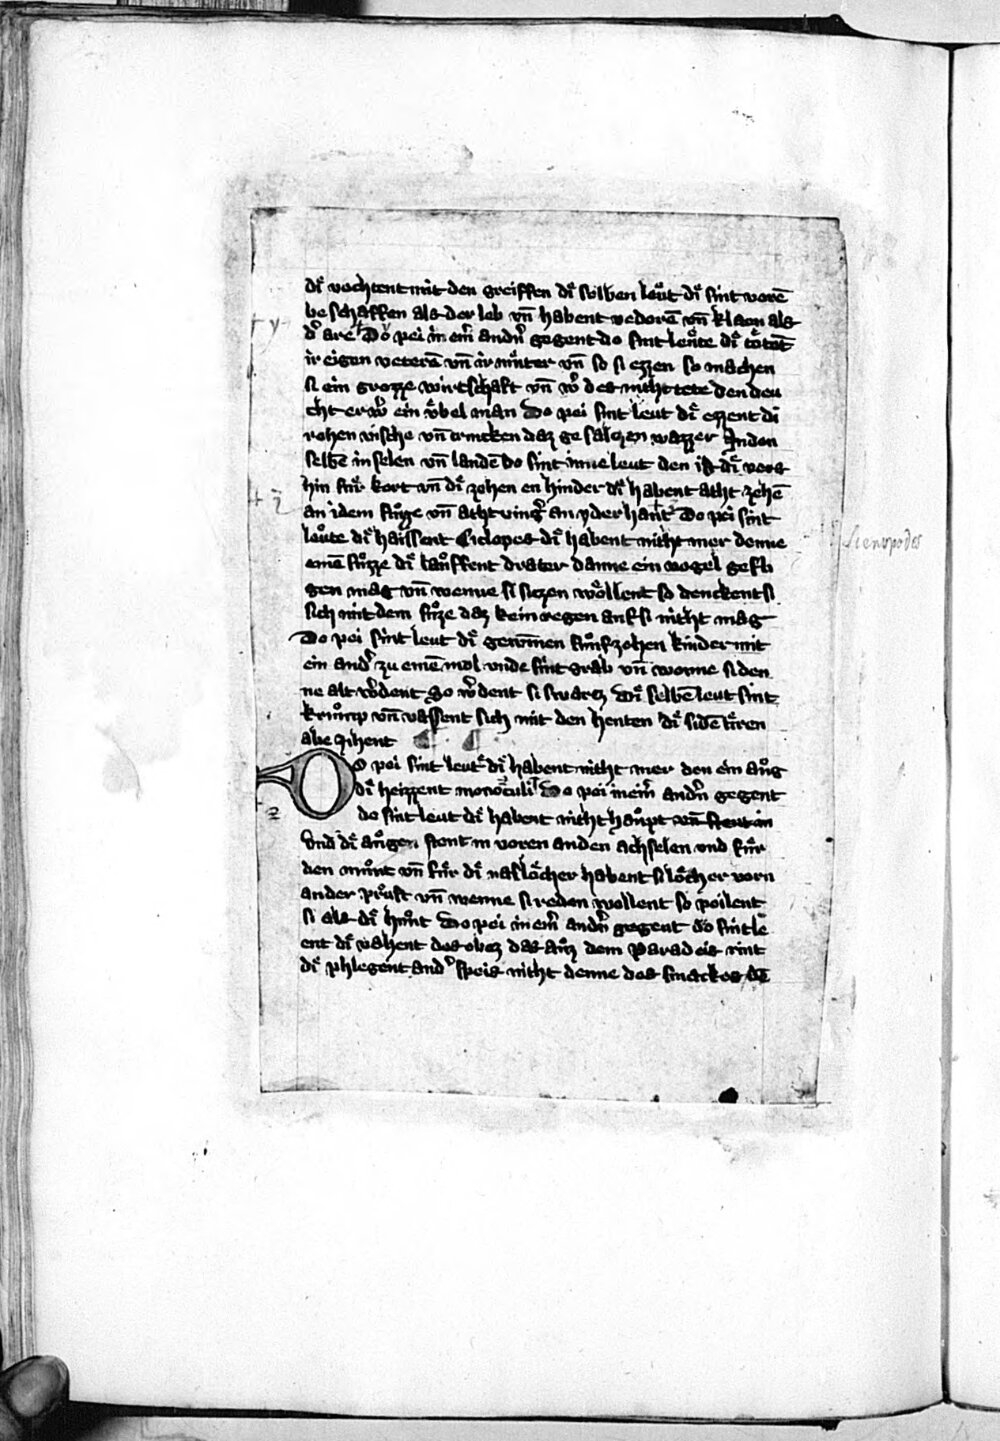 di vechtent mit den greiffen di selben leut di sint vorē
be schaffen als der leb vñ habent vedorē vñ klaen als
d͛ are Do pei in em̄ andn̄ gegent do sint leute di totēt
ir eigen veterē vñ ir muter vñ so si ezzen so machen
si ein grozze wirtschaft vñ w͛ des nitht tete den deu
cht er w͛ ein vbel man Do pei sint leut di ezzent di
rohen vische vñ trincken daz ge salczen wazzer In den
selbē inselen vñ landē do sint leut den ist di vers
hin fur kort vñ di zehen en hinder di habent atht zehē
an idem fuzze vñ atht ving͛ an yder hant Do pei sint
leute di haissent Ciclopes di habent nitht mer denne
einē fuzze di lauffent drater danne ein vogel gefli
gen mag vñ wenne si siczen wollent so denckent si
sich mit dem fuze daz kein regen auf si nitht mag
Do pei sint leut di gewinnen funf zehen kinder mit
ein and͛ zu einē mol vnde sint grab vñ wenne si den
ne alt w͛dent so w͛dent si swarcz Di selbē leut sint
krump vñ vassent sich mit den henten di sidē tiren
abe zihent
Do pei sint leut di habent nitht mer den ein aug
di heizzent monoculi Do pei in em̄ andn̄ gegent
do sint leut di habent nitht haupt
vnd di augen stent in voren an den achselen vnd fur
den munt vñ fur di naslocher habent si locher vorn
an der prust vñ wenne si reden wollent so poilent
si als di hunt Do pei in em̄ andn̄ gegent do sint le
ent di vahent des obez das auz dem Paradeis rint
di phlegent and͛ speis nitht denne des smackes dē